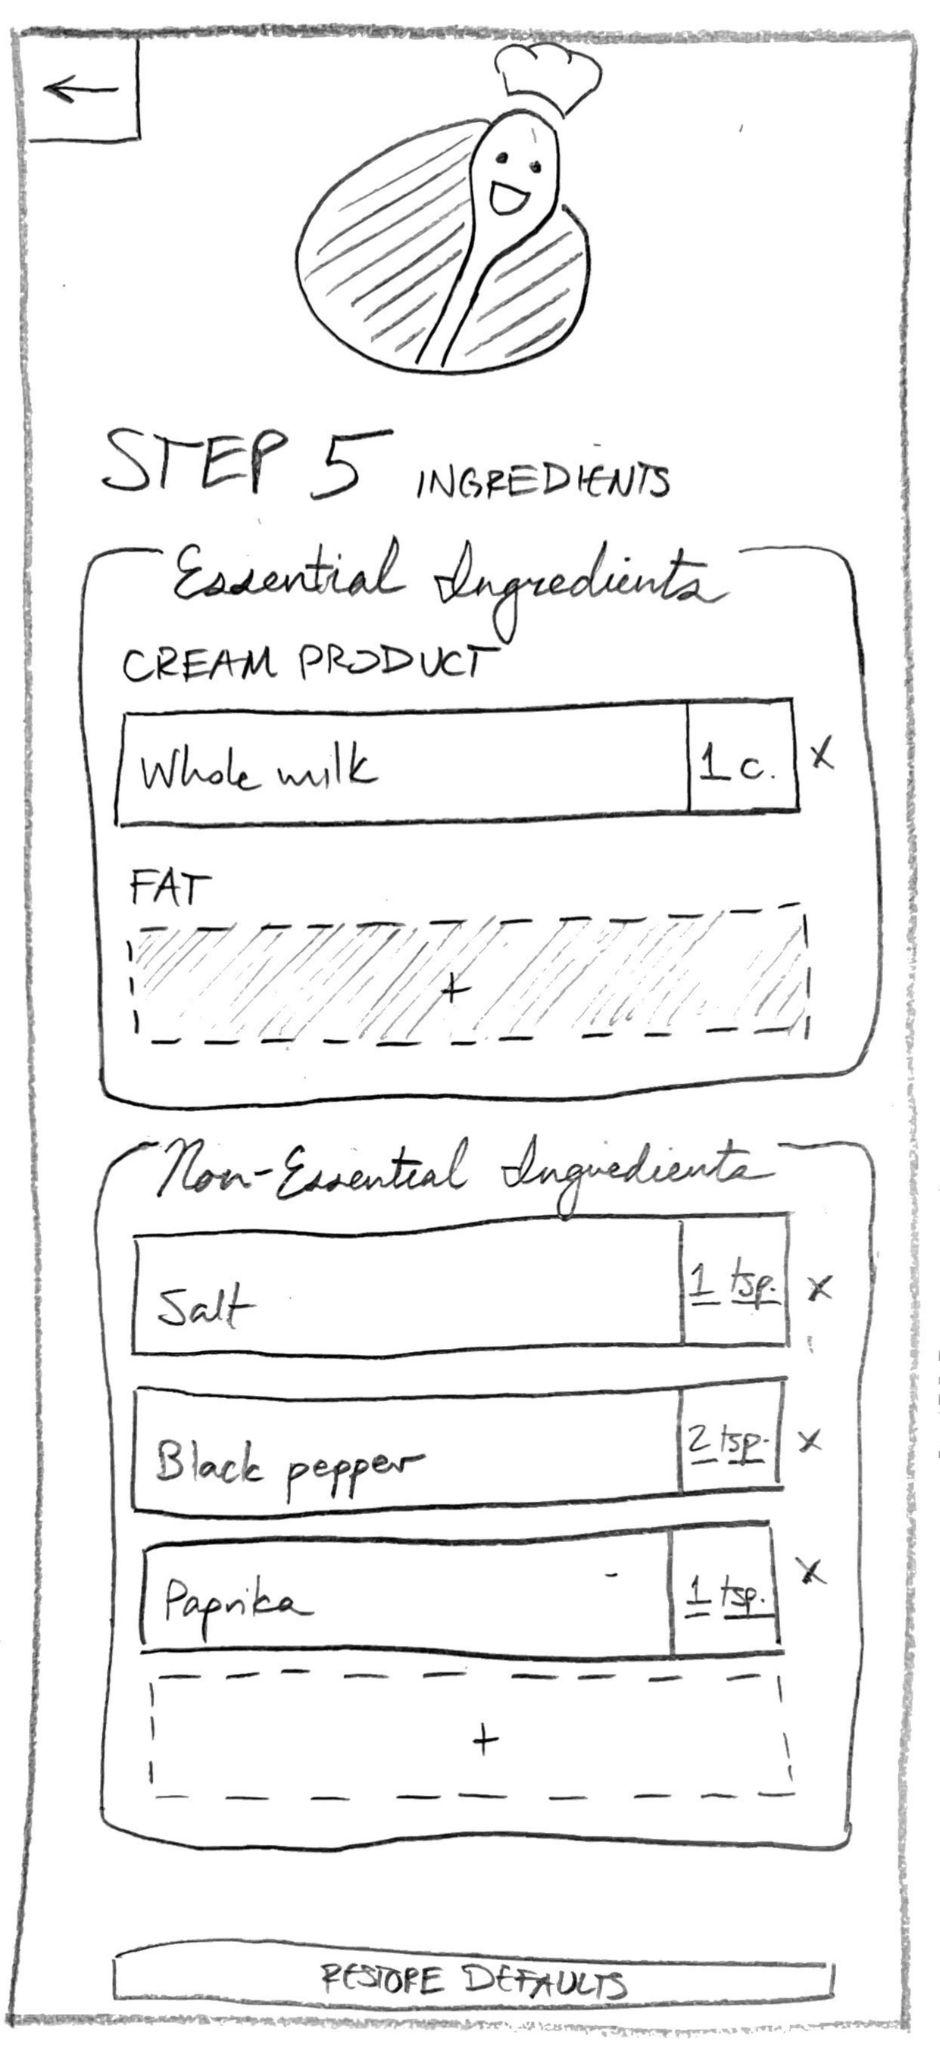 ←
STEP 5 INGREDIENTS
Essential Ingredients
CREAM PRODUCT
Whole milk 1 c. x
FAT
+
Non-Essential Ingredients
Salt 1 tsp. x
Black pepper 2 tsp. x
Paprika 1 tsp. x
+
RESTORE DEFAULTS